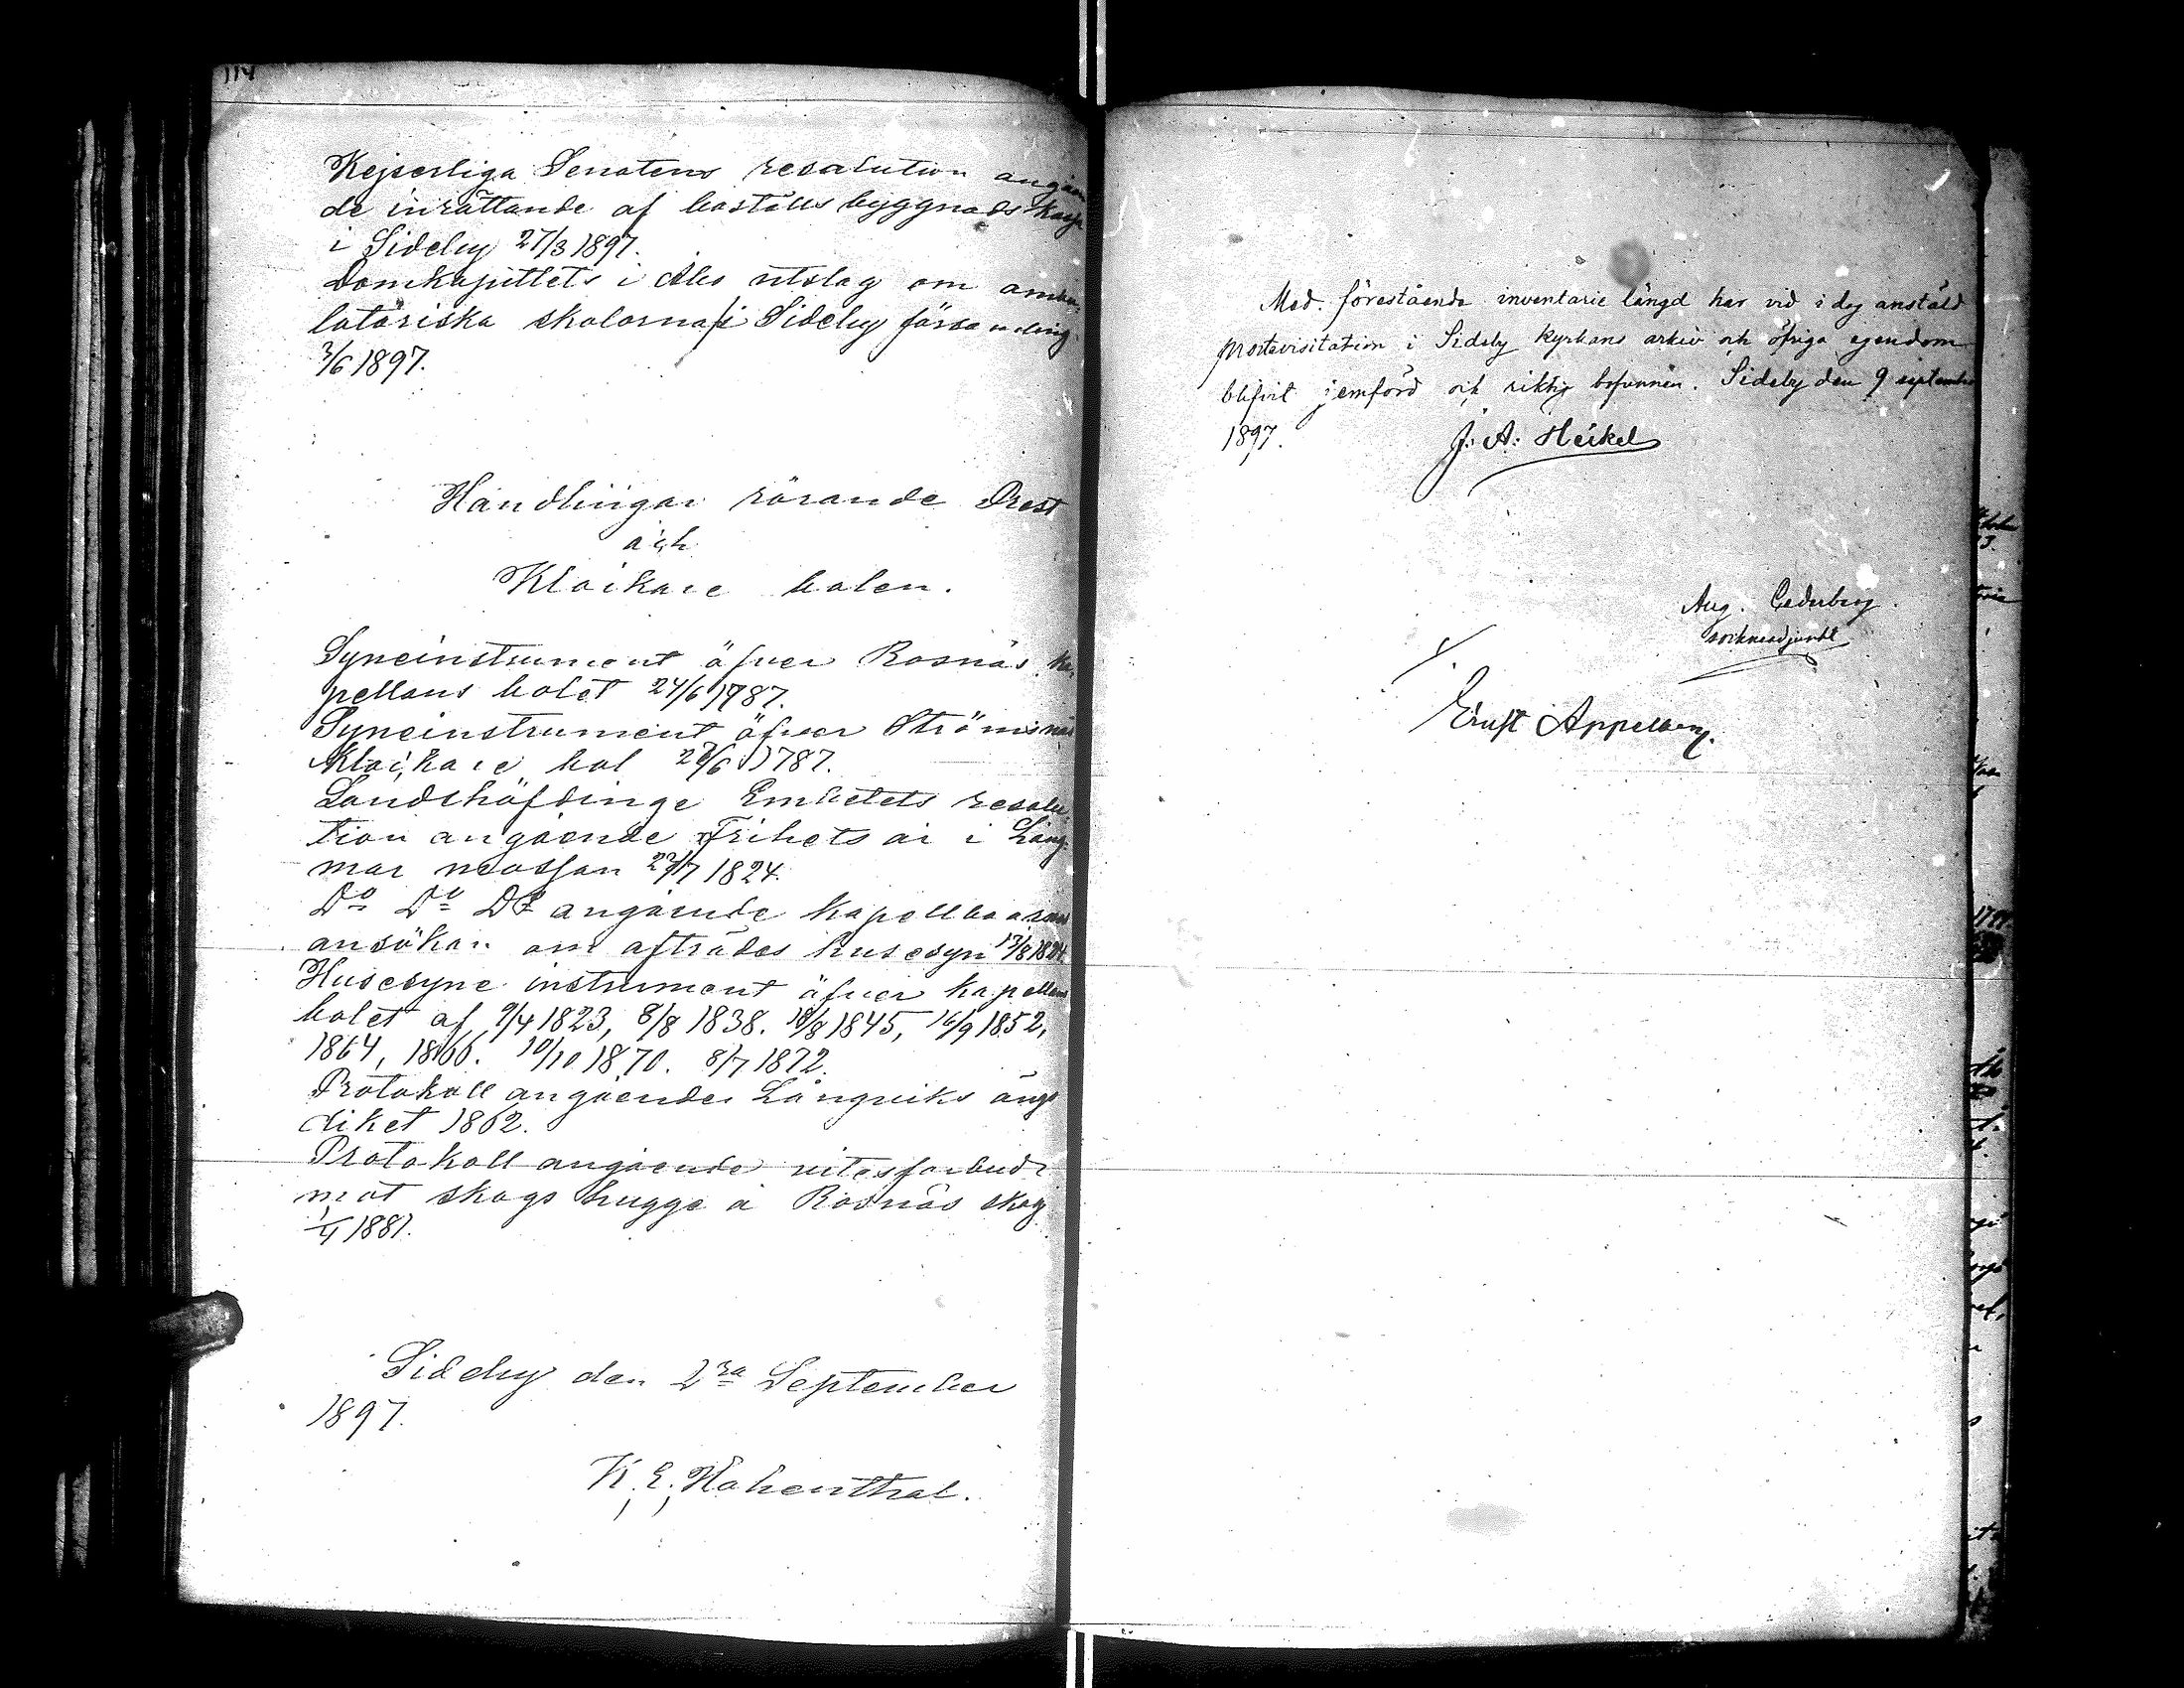 114
Kejserliga Senatens resolution angåen
de inrättande af boställs byggnads kassa
i Sideby 27/3 1897.
Domkapitlets i Åbo utslag om ambu-
latöriska skolorna i Sideby församling
3/6 1897.
Handlingar rörande Prest
och
Klockare bolen.
Syneinstrument öfver Rosnäs ka-
pellans bolet 24/6 1787.
Syneinstrument öfver Strömsnäs
Klockare bol 26/6 1787.
Landshöfdinge Embetets resolu-
tion angående Frihets år i Lång-
mar mossan 22/7 1824.
Do Do Do angående Kapellboarnas
ansökan om afträdes husesyn 17/8 1824.
Husesyne instrument öfver kapellans
bolet af 9/4 1823, 8/8 1838. 18/8 1845, 16/9 1852,
1864, 1866. 10/10 1870. 8/7 1872.
Protokoll angående Långviks ängs
diket 1862.
Protokoll angående vitesförbud
mot skogs hugge å Rosnäs skog
1/4 1881.
Sideby den 2ra September
1897.
K. E. Hohenthal.
Med förestående inventarie längd har vid i dag anstäld
prostevisitation i Sideby kyrkans arkiv och öfriga egendom
blifvit jemförd och riktig befunnen. Sideby den 9 september
1897. J. A. Heikel
Aug. Cederberg.
sockneadjunkt
Ernst Appelberg.